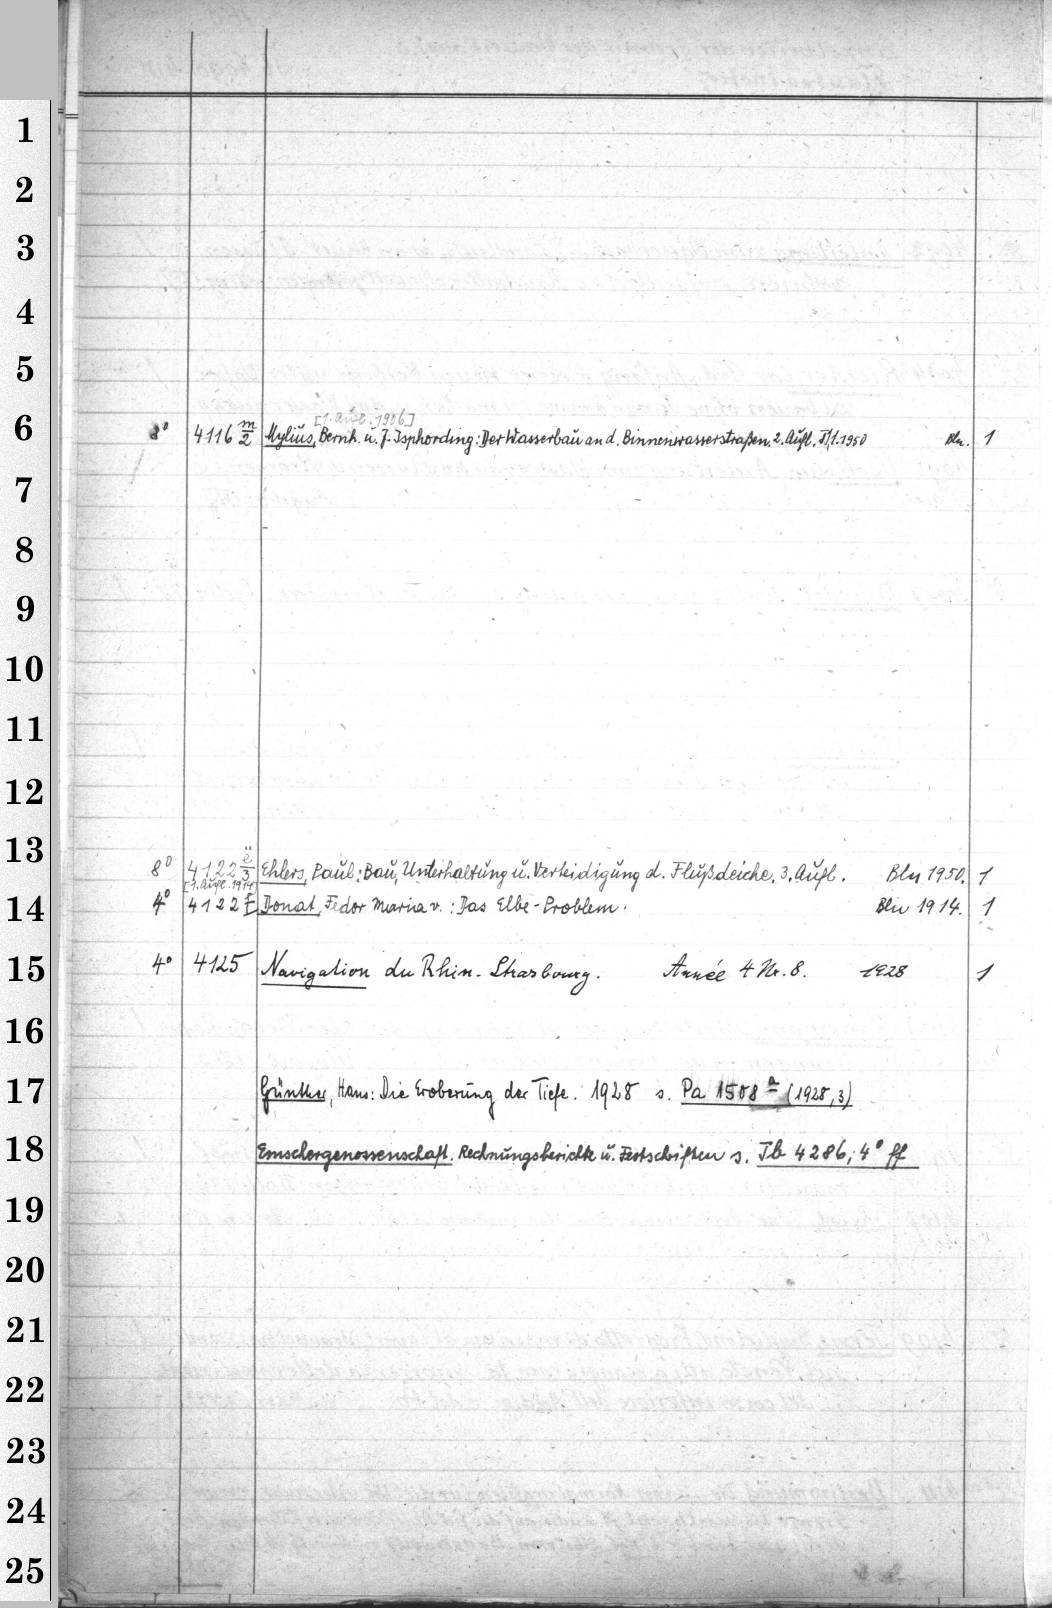 1
2
3
4
5
6
[1. Aufl. 1906]
8° 4116 m/2 Mylius, Bernh. u. J. Isphording: Der Wasserbau an d. Binnenwasserstraßen. 2. Aufl. T1. 1950 Bln. 1
7
8
9
10
11
12
13
8° 4122 ë/3 Ehlers, Paul: Bau, Unterhaltung u. Verteidigung d. Flußdeiche. 3. Aufl. Bln 1950. 1
[1. Aufl. 1914]
14
4° 4122 Donat, Fedor Maria v.: Das Elbe-Problem. Bln 1914. 1
15
4° 4125 Navigation du Rhin. Strasbourg. Année 4 Nr. 8. 1928 1
16
17
Günther, Hans: Die Eroberung der Tiefe. 1928 s. Pa 1508 a (1928,3)
18
Emschergenossenschaft. Rechnungsberichte u. Festschriften s. Tb 4286, 4° ff
19
20
21
22
23
24
25